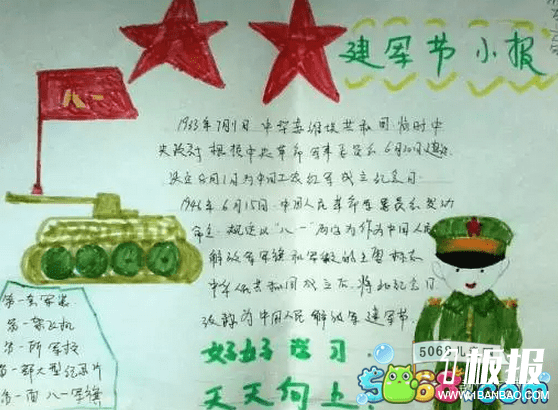 建军节小报
八一
1933年7月1日中华苏维埃共和国临时中
央政府根据中央革命军事委员会6月30日建议
决定8月1日为中国工农红军成立纪念日
1946年6月15日中国人民革命军事委员会发布
命令,规定以"八一"两字为作为中国人民
解放军军旗和军徽的主要标志
中华人民共和国成立后,将此纪念日
改称为中国人民解放军建军节
第一套军装
第一架飞机
第一所军校
第一部大型纪录片
第一面八一军旗
好好学习
天天向上
5068儿
板报
5068.com
1BANBAO.COM